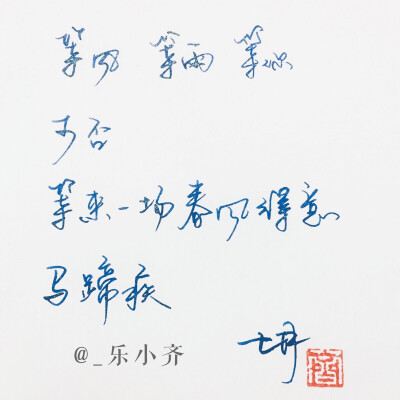 等风 等雨 等你
可否
等来一场春风得意
马蹄疾
@_乐小齐